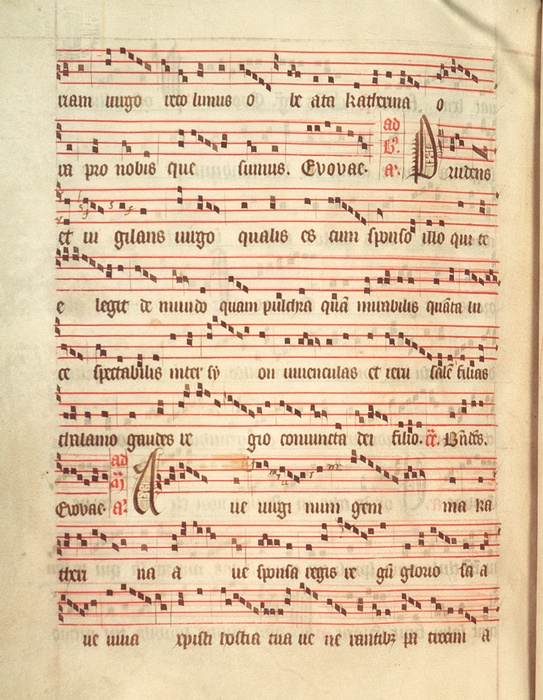 riam virgo recolimus o be ata katherina o
ra pro nobis que sumus. Evovae. ad B'. a'. Prudens
et vi gilans virgo qualis es cum sponso illo qui te
e legit de mundo quam pulchra quā mirabilis quāta lu
ce spectabilis inter sy on iuvenculas et ieru salē filias
thalamo gaudes re gio coniuncta dei filio. Bñdēs.
Evovae. ad a'. A ve virgi num gem ma ka
theri na a ve sponsa regis re gū glorio sa a
ve viva xpisti hostia tua ve ne rantibʒ pa trocini a